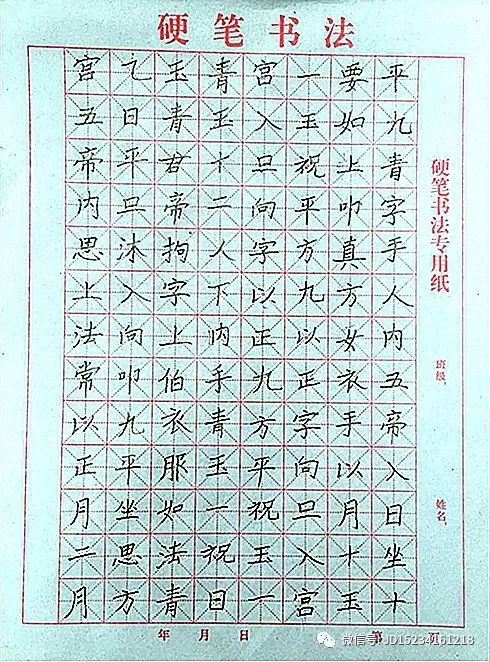 硬笔书法
硬笔书法专用纸
班级
姓名
平九青字手人内五帝入日坐十
要如上叩真方女衣手以月十玉
一玉祝平方九以正字向旦入宫
宫入旦向字以正九方平祝玉一
青玉十二人下内手青玉一祝日
玉青君帝拘字上伯衣服如法青
乙日平旦沐入向叩九平坐思方
宫五帝内思上法常以正月二月
年 月 日
第 页
微信号: JD15234161218